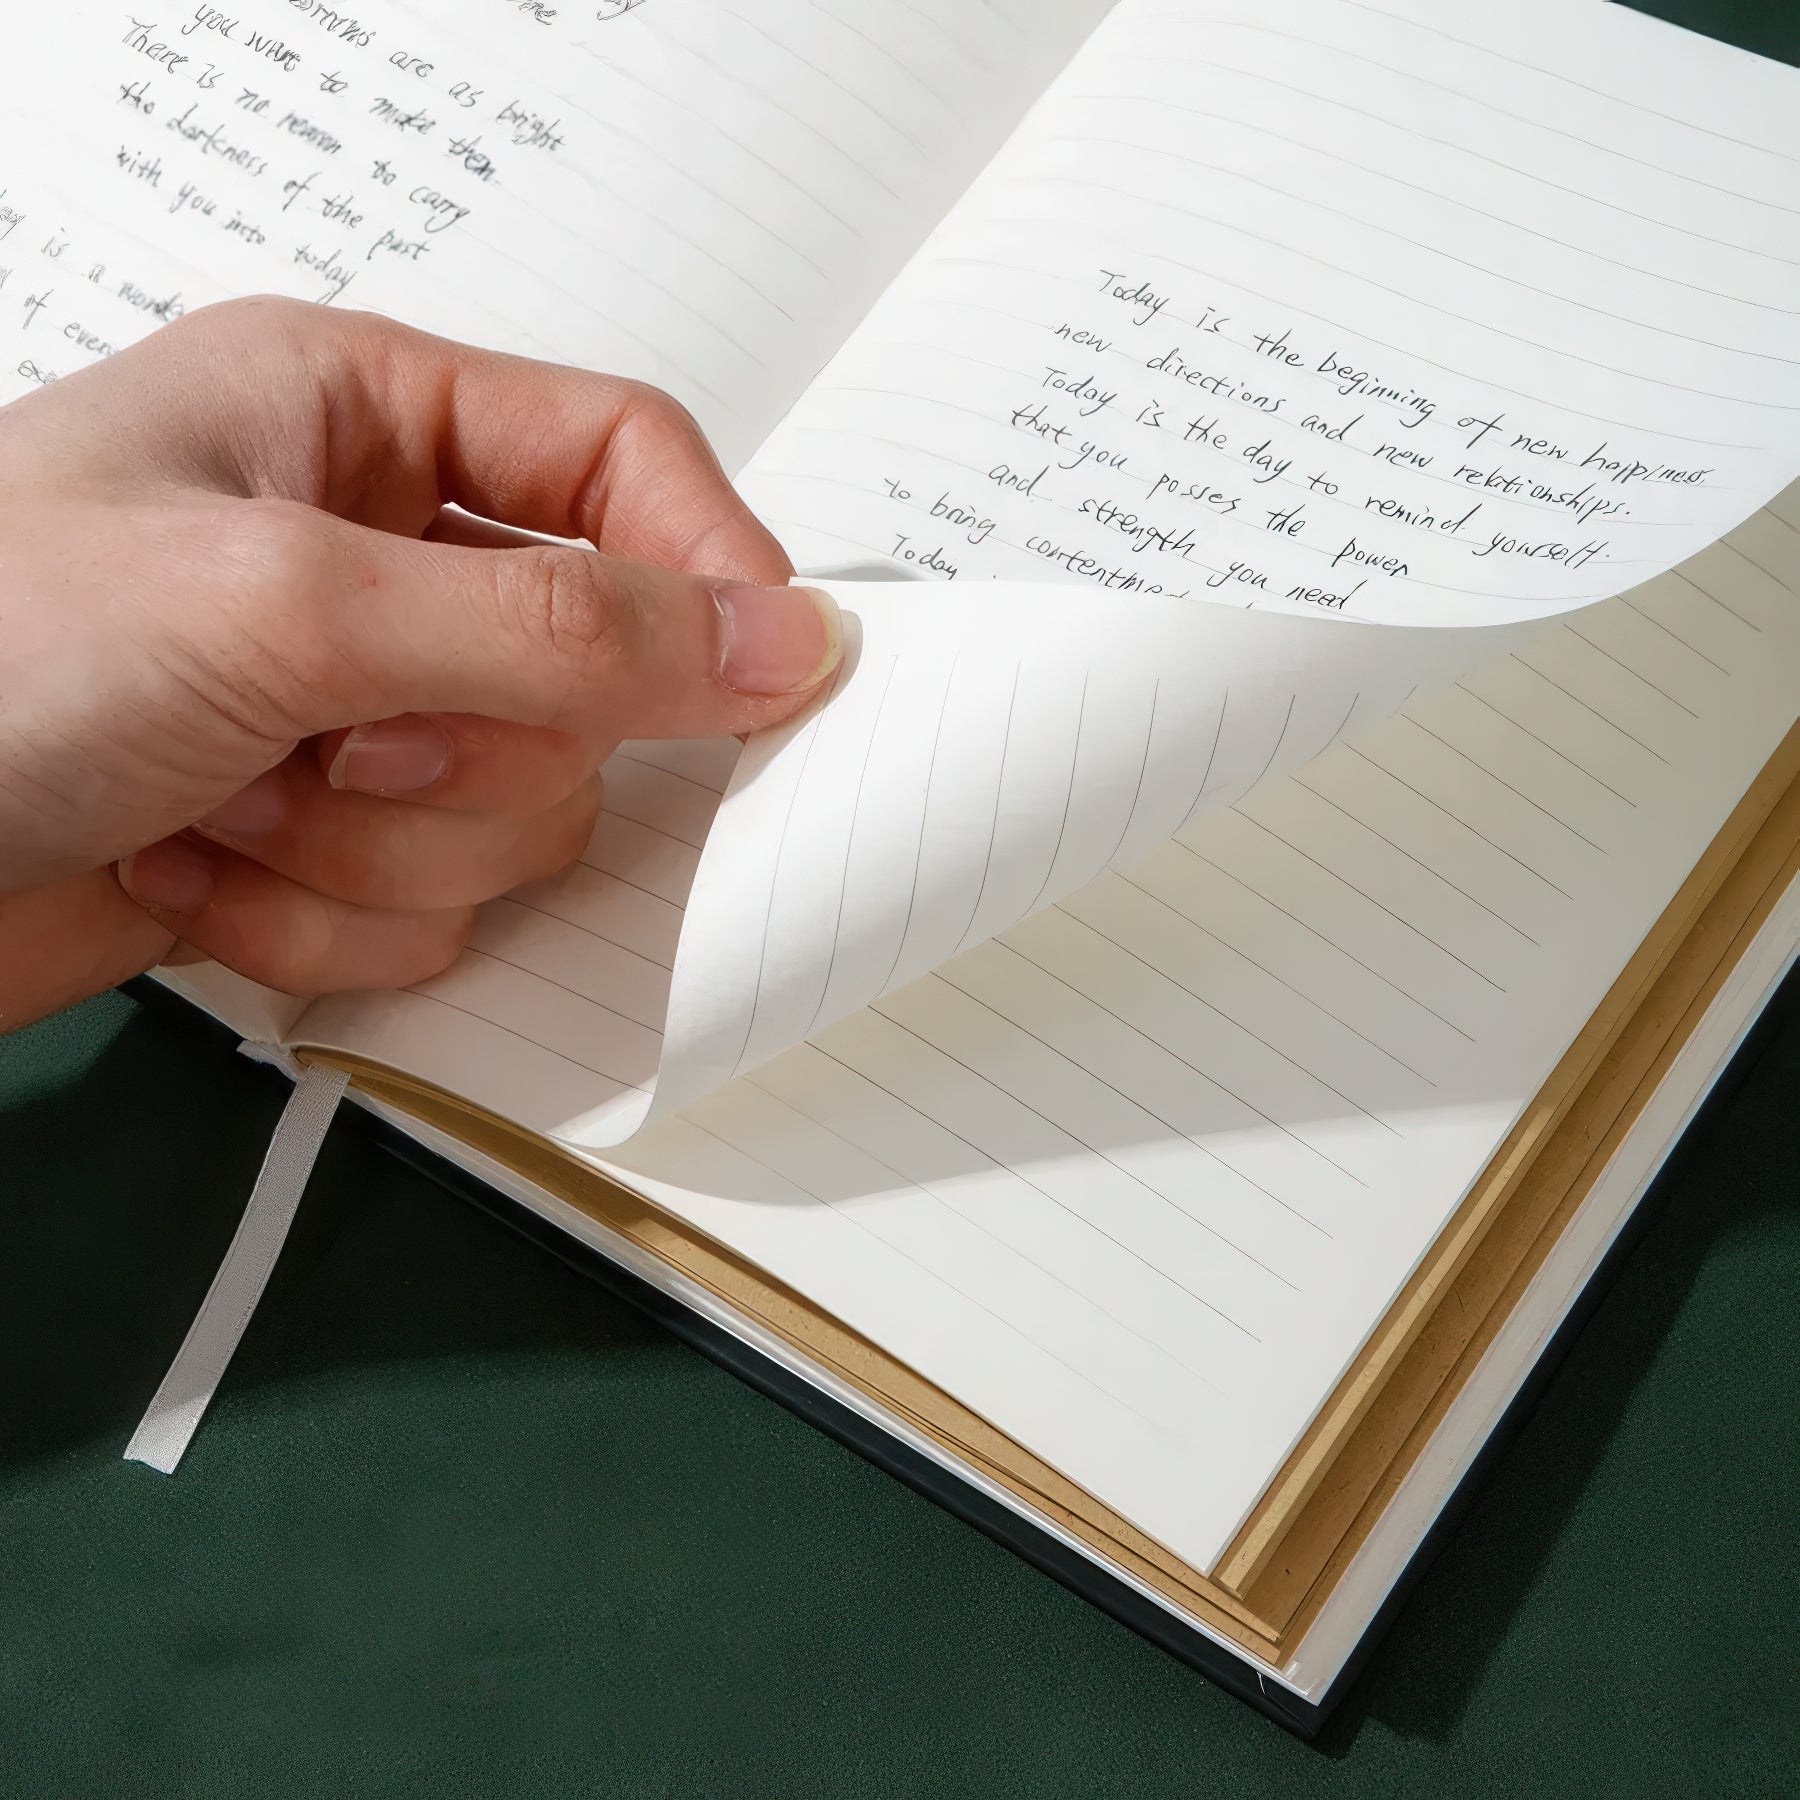 are as bright
you want to make them.
There is no reason to carry
the darkness of the past
with you into today
is a
of
Today is the beginning of new happiness,
new directions and new relationships.
Today is the day to remind yourself.
that you posses the power
and strength you need
to bring contentment
Today